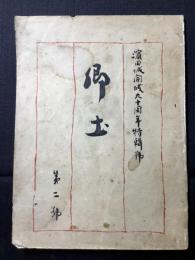 濱田城開城九十周年特輯號
郷土
第二號